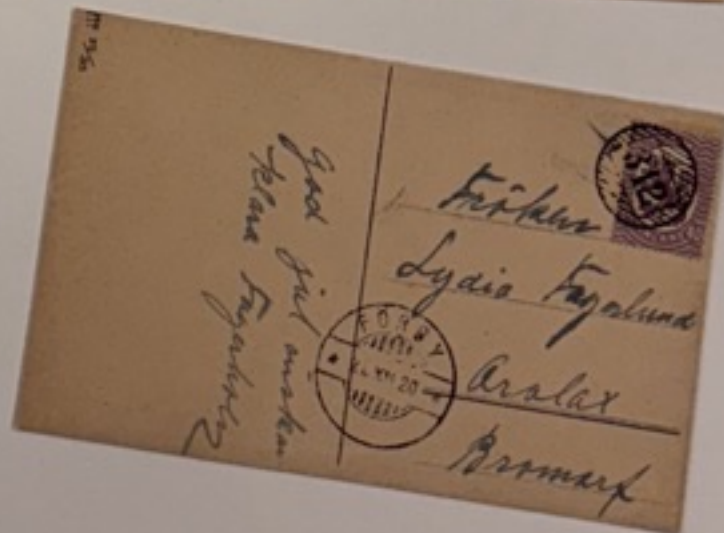 God jul önskar
Klara Fagerholm
Fröken
Lydia Fagerlund
Arolax
Bromarf
312
FÖRBY
XII 20